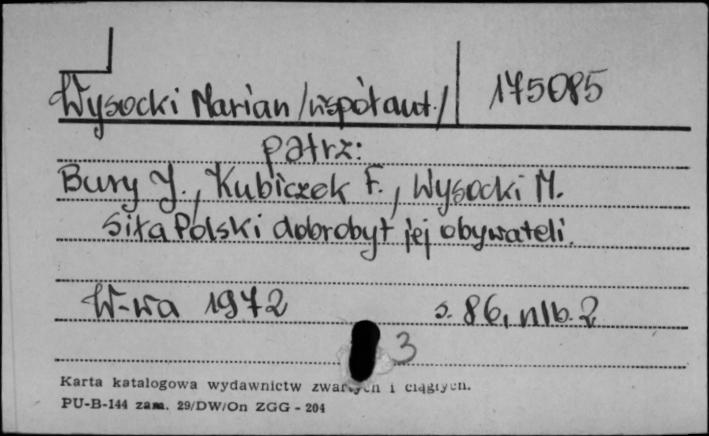 Wysocki Marian /współaut./ 175085
patrz:
Bury J., Kubiczek F., Wysocki M.
Siła Polski dobrobyt jej obywateli.
W-wa 1972 s. 86, nlb. 2
3
Karta katalogowa wydawnictw zwartych i ciągłych.
PU-B-144 zam. 29/DW/On ZGG - 204